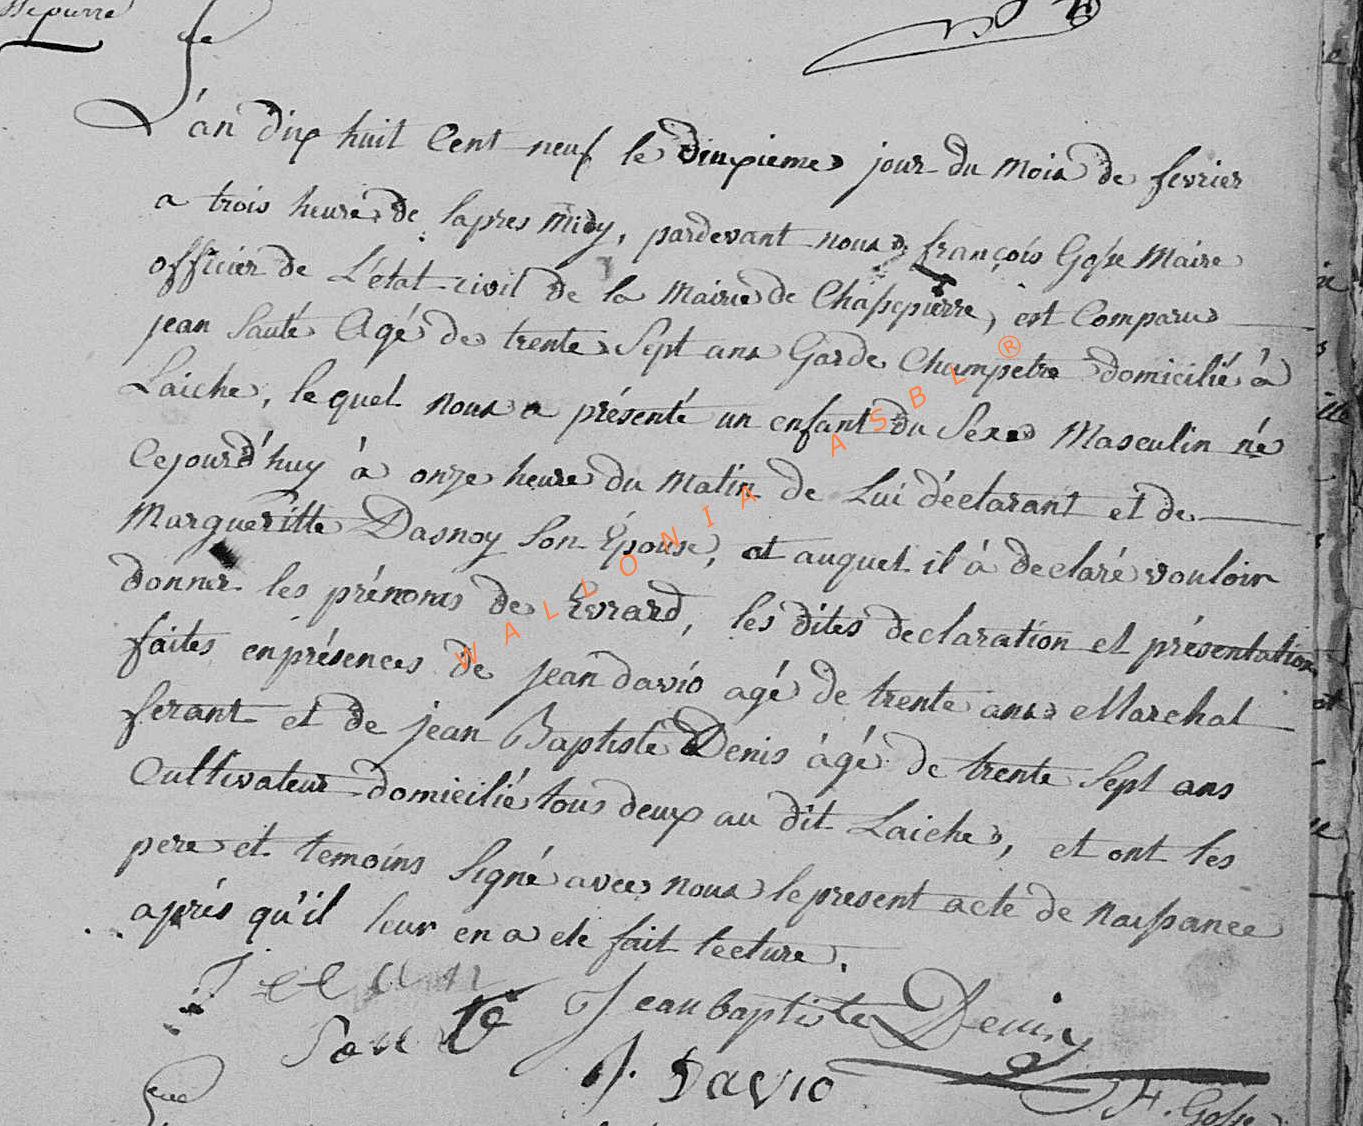 L'an dix huit Cent neuf le deuxieme jour du Mois de fevrier
a trois heure de lapres midy, pardevant nous françois Gosse Maire
officier de L'état civil de la Mairie de Chassepierre, est Comparu
jean Sauté Agé de trente Sept ans Garde Champetre domicilié à
Laiche, le quel nous a présenté un enfant du Sexe Masculin né
Cejourd'huy à onze heure du matin de Lui déclarant et de
Margueritte Dasnoy Son Épouse, et auquel il à declaré vouloir
donner les prénoms de Evrard, les dites declaration et présentation
faites enprésences de jean davio agé de trente ans Marchal
ferant et de jean Baptiste Denis âgé de trente Sept ans
Cultivateur domicilié tous deux au dit Laiche, et ont les
pere et temoins Signé avec nous le present acte de naissance
aprés qu'il leur en a eté fait lecture.
Jean
Sauté
Jeanbaptiste Denis
J. DaviO
F. Gosse
WALLONIA ASBL ®